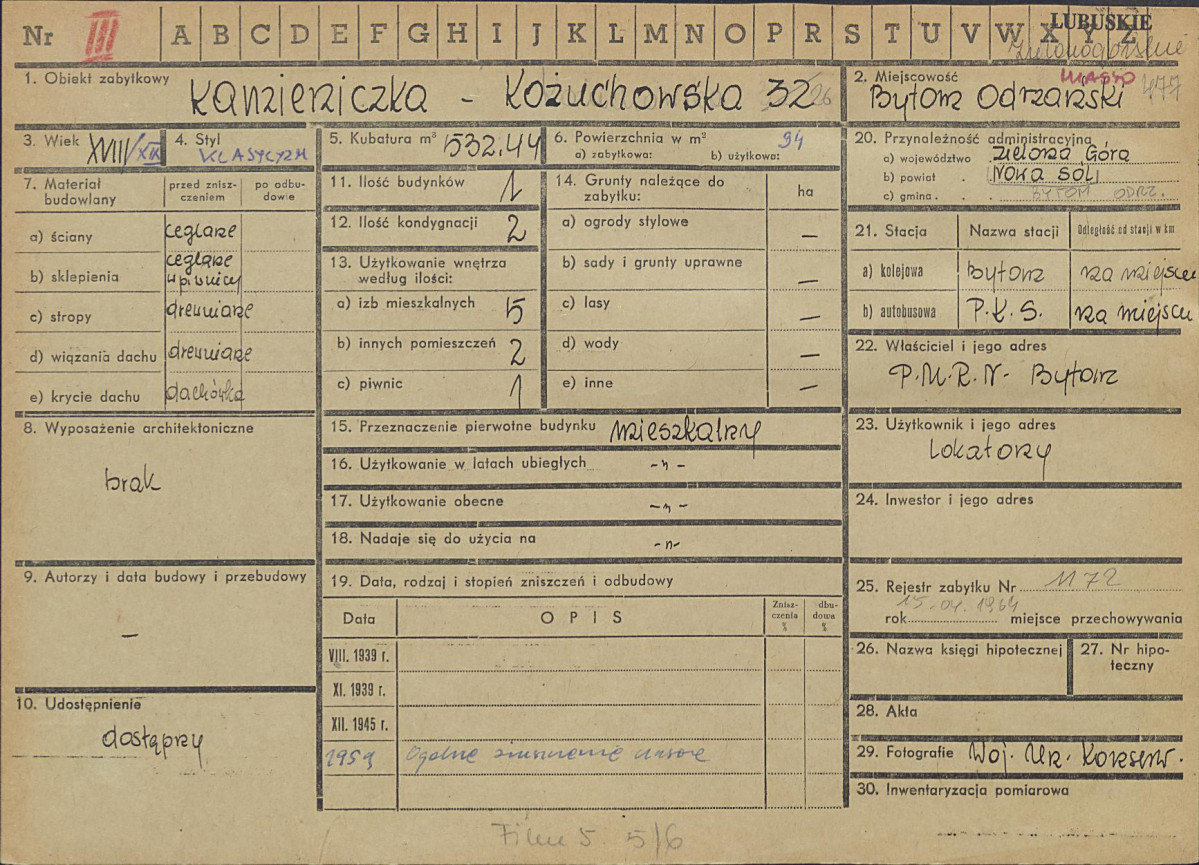 Nr III A B C D E F G H I J K L M N O P R S T U V W X Y Z
LUBUSKIE
zielonogórskie
1. Obiekt zabytkowy
Kamieniczka - Kożuchowska 32 26
2. Miejscowość
MIASTO 477
Bytom Odrzański
3. Wiek XVIII/XIX
4. Styl
KLASYCYZM
5. Kubatura m³ 532.44
6. Powierzchnia w m² 94
a) zabytkowa: b) użytkowa:
20. Przynależność administracyjna
a) województwo Zielona Góra
b) powiat . Nowa Sól
c) gmina . . . BYTOM ODRZ.
7. Materiał budowlany
przed znisz-
czeniem
po odbu-
dowie
a) ściany ceglane
b) sklepienia ceglane
w piwnicy
c) stropy drewniane
d) wiązania dachu drewniane
e) krycie dachu dachówka
11. Ilość budynków 1
12. Ilość kondygnacji 2
13. Użytkowanie wnętrza
według ilości:
a) izb mieszkalnych 5
b) innych pomieszczeń 2
c) piwnic 1
14. Grunty należące do
zabytku:
ha
a) ogrody stylowe —
b) sady i grunty uprawne —
c) lasy —
d) wody —
e) inne —
21. Stacja Nazwa stacji Odległość od stacji w km
a) kolejowa Bytom na miejscu
b) autobusowa P.K.S. na miejscu
22. Właściciel i jego adres
P.M.R.N. Bytom
8. Wyposażenie architektoniczne
brak
15. Przeznaczenie pierwotne budynku mieszkalny
16. Użytkowanie w latach ubiegłych -"-
17. Użytkowanie obecne -"-
18. Nadaje się do użycia na -"-
23. Użytkownik i jego adres
Lokatorzy
24. Inwestor i jego adres
9. Autorzy i data budowy i przebudowy
—
19. Data, rodzaj i stopień zniszczeń i odbudowy
Data O P I S
Znisz-
czenia
%
dbu-
dowa
%
VIII. 1939 r.
XI. 1939 r.
XII. 1945 r.
1959 Ogólne zniszczenie
25. Rejestr zabytku Nr 1172
15.04.1964
rok miejsce przechowywania
26. Nazwa księgi hipotecznej
27. Nr hipo-
teczny
10. Udostępnienie
dostępny
28. Akta
29. Fotografie Woj. Urz. Konserw.
30. Inwentaryzacja pomiarowa
Film 5. 5/6